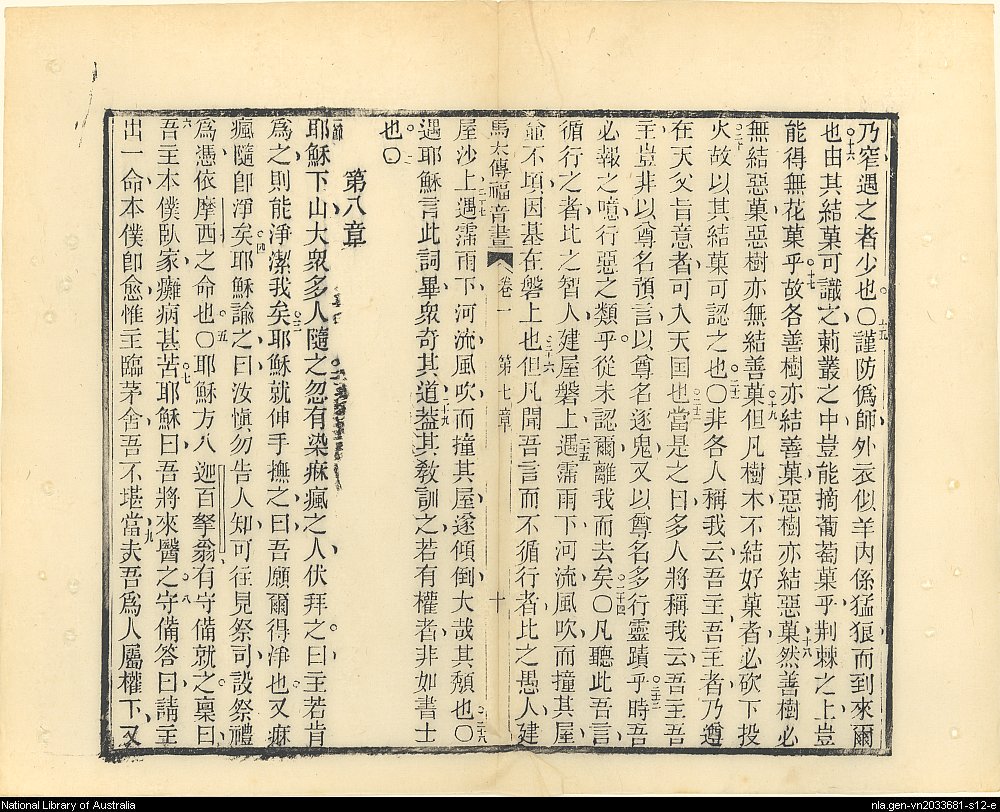 乃窄遇之者少也〇謹防僞師外衣似羊內係猛狼而到來爾
也由其結菓可識之莿叢之中豈能摘葡萄菓乎荆棘之上豈
能得無花菓乎故各善樹亦結善菓惡樹亦結惡菓然善樹必
無結惡菓惡樹亦無結善菓但凡樹木不結好菓者必砍下投
火故以其結菓可認之也〇非各人稱我云吾主吾主者乃遵
在天父旨意者可入天国也當是之日多人將稱我云吾主吾
主豈非以尊名預言以尊名逐鬼又以尊名多行靈蹟乎時吾
必報之噫行惡之類乎從未認爾離我而去矣〇凡聽此吾言
循行之者比之智人建屋磐上遇霈雨下河流風吹而撞其屋
爺不頃因基在磐上也但凡聞吾言而不循行者比之愚人建
馬太傳福音書 卷一 第七章 十
屋沙上遇霈雨下河流風吹而撞其屋遂傾倒大哉其頽也〇
遇耶穌言此詞畢衆奇其道葢其敎訓之若有權者非如書士
也〇
第八章
耶穌下山大衆多人隨之忽有染痳瘋之人伏拜之曰主若肯
爲之則能淨潔我矣耶穌就伸手撫之曰吾願爾得淨也又痳
瘋隨卽淨矣耶穌諭之曰汝愼勿告人知可往見祭司設祭禮
爲憑依摩西之命也〇耶穌方入迦百拏翁有守備就之稟曰
吾主本僕臥家癱病甚苦耶穌曰吾將來醫之守備答曰請主
出一命本僕卽愈惟主臨茅舍吾不堪當夫吾爲人屬權下又
National Library of Australia
nla.gen-vn2033681-s12-e